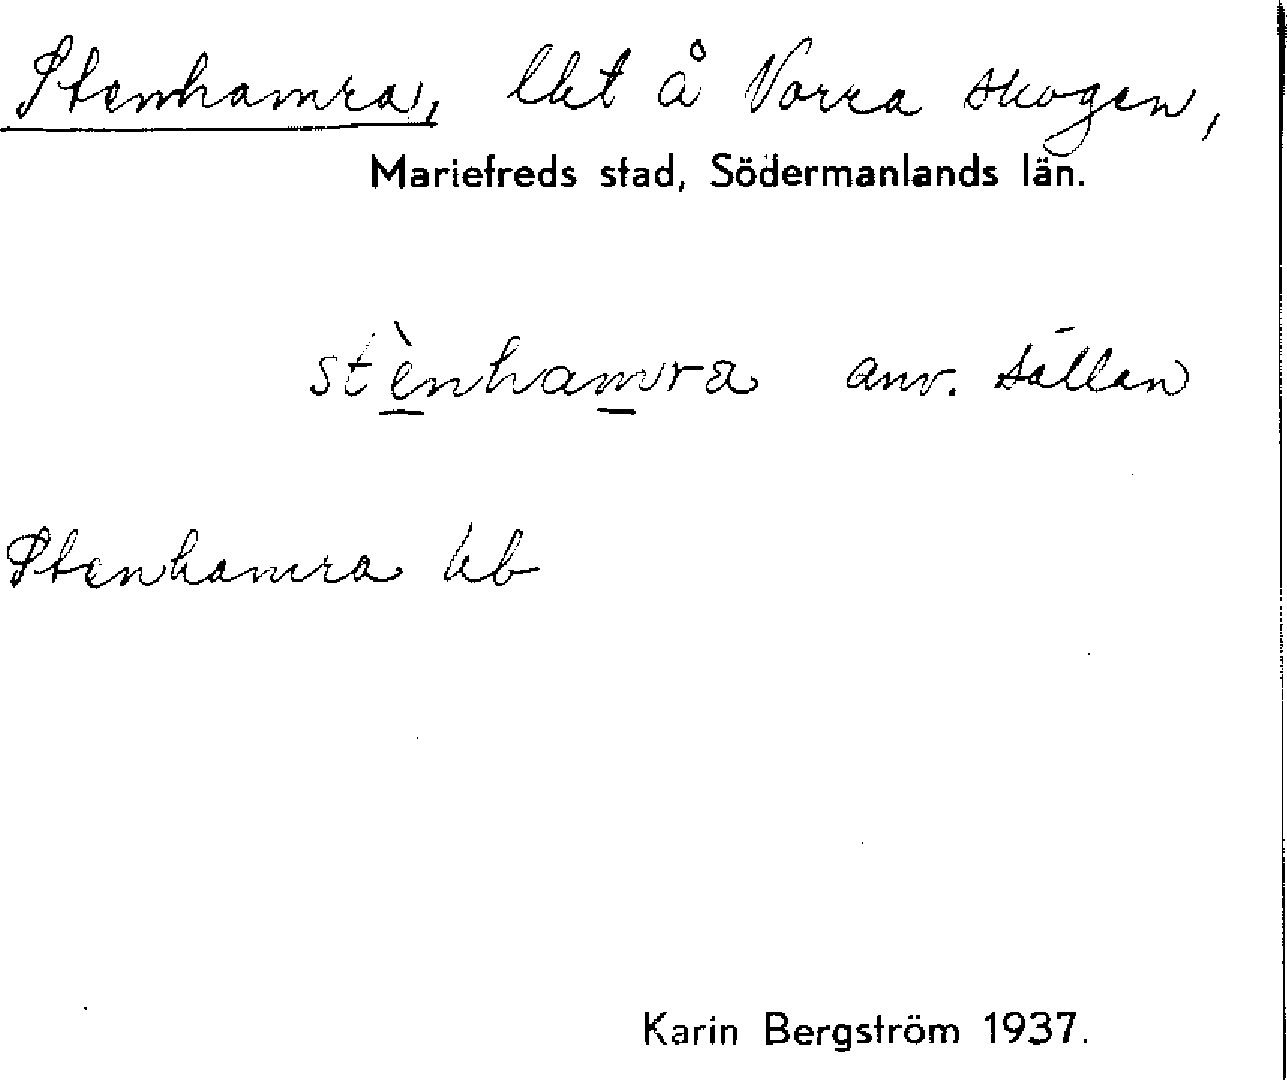 Stenhamra, lht å Norra skogen,
Mariefreds stad, Södermanlands län.
stènhamra anv. sällan
Stenhamra kb
Karin Bergström 1937.